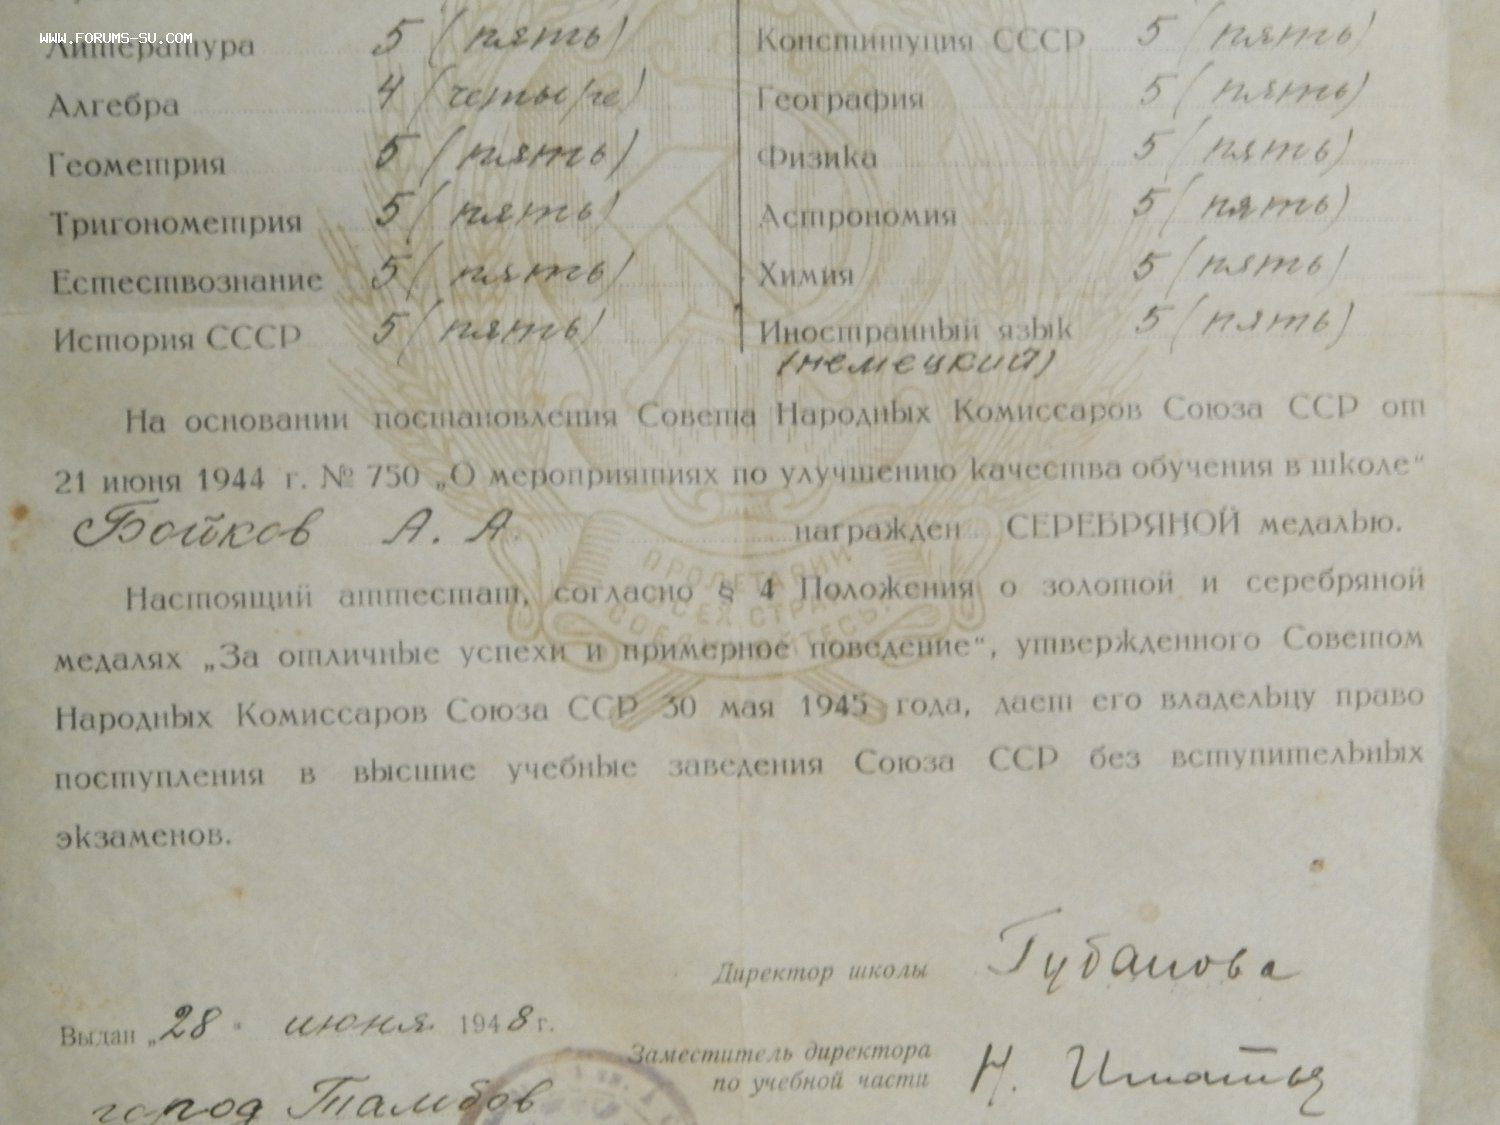 www.forums-su.com
Литература 5 (пять) Конституция СССР 5 (пять)
Алгебра 4 (четыре) География 5 (пять)
Геометрия 5 (пять) Физика 5 (пять)
Тригонометрия 5 (пять) Астрономия 5 (пять)
Естествознание 5 (пять) Химия 5 (пять)
История СССР 5 (пять) Иностранный язык 5 (пять)
(немецкий)
На основании постановления Совета Народных Комиссаров Союза ССР от
21 июня 1944 г. № 750 „О мероприятиях по улучшению качества обучения в школе“
Бойков А. А. награжден СЕРЕБРЯНОЙ медалью.
ПРОЛЕТАРИИ
ВСЕХ СТРАН
СОЕДИНЯЙТЕСЬ!
Настоящий аттестат, согласно § 4 Положения о золотой и серебряной
медалях „За отличные успехи и примерное поведение“, утвержденного Советом
Народных Комиссаров Союза ССР 30 мая 1945 года, дает его владельцу право
поступления в высшие учебные заведения Союза ССР без вступительных
экзаменов.
Директор школы Губанова
Выдан „28“ июня 1948 г.
Заместитель директора
по учебной части Н.
город Тамбов